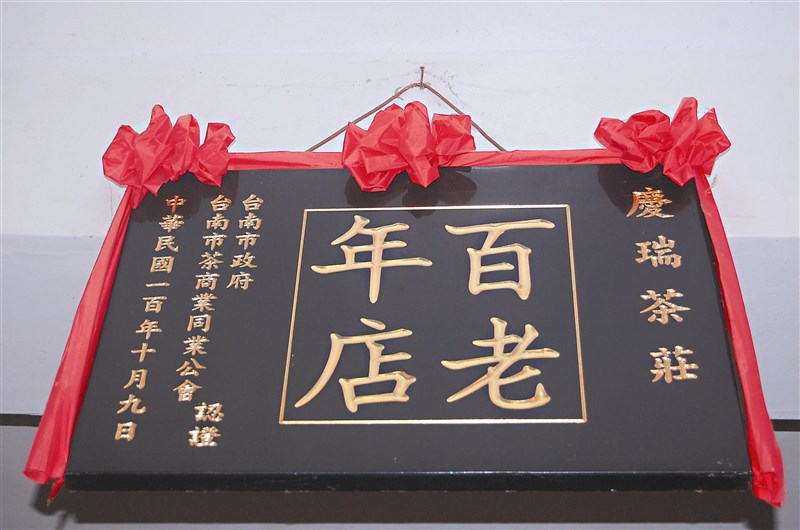 慶瑞茶莊
百年
老店
台南市政府
台南市茶商業同業公會
認證
中華民國一百年十月九日